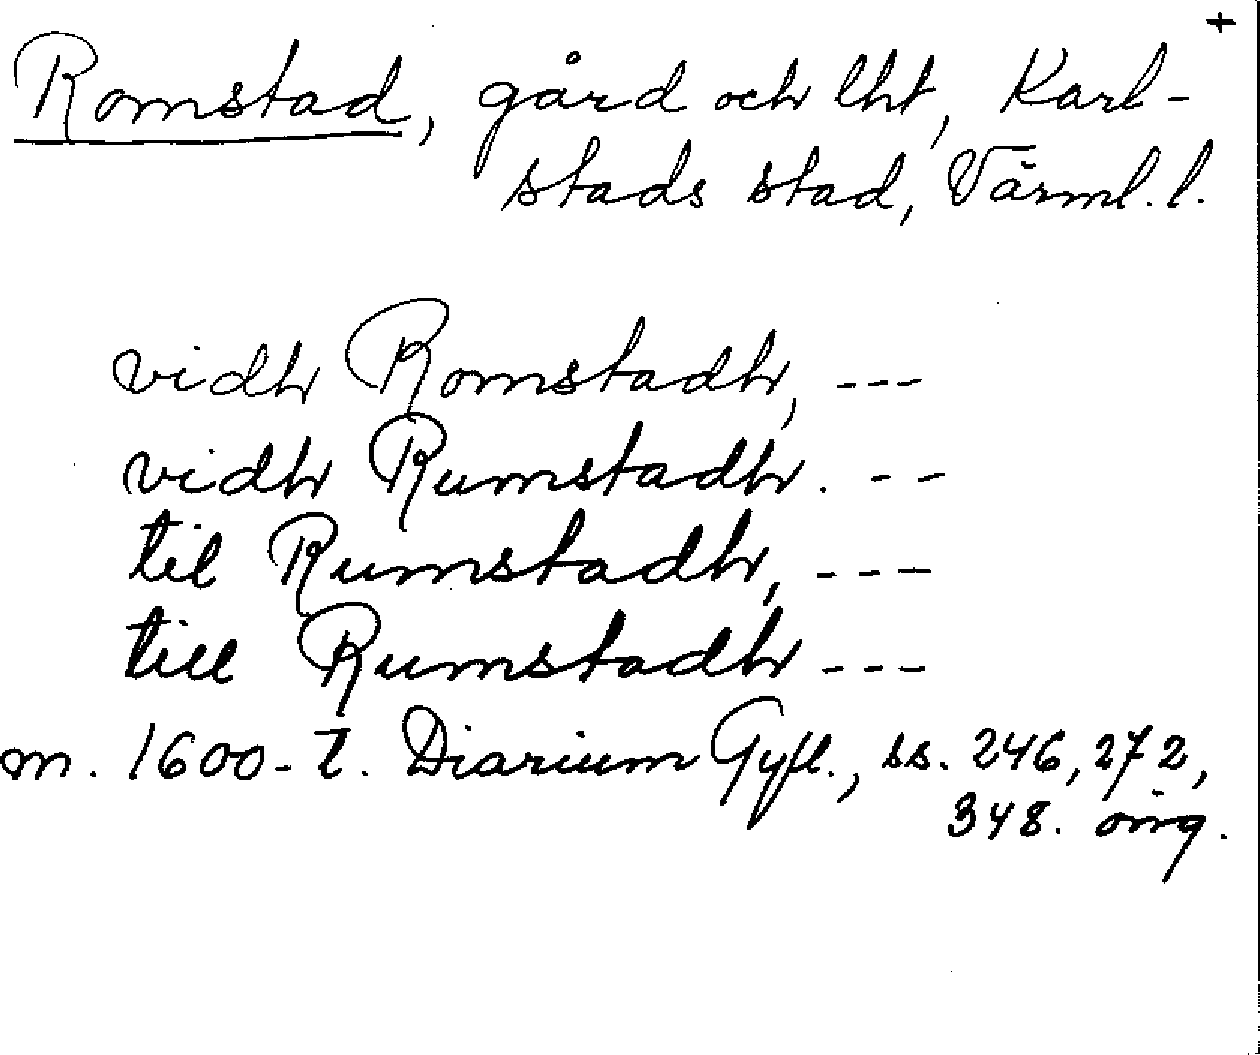 +
Romstad, gård och lht, Karl-
stads stad, Värml. l.
vidh Romstadh, ---
vidh Rumstadh. --
til Rumstadh, ---
till Rumstadh ---
m. 1600-t. Diarium Gyll., ss. 246, 272,
348. orig.